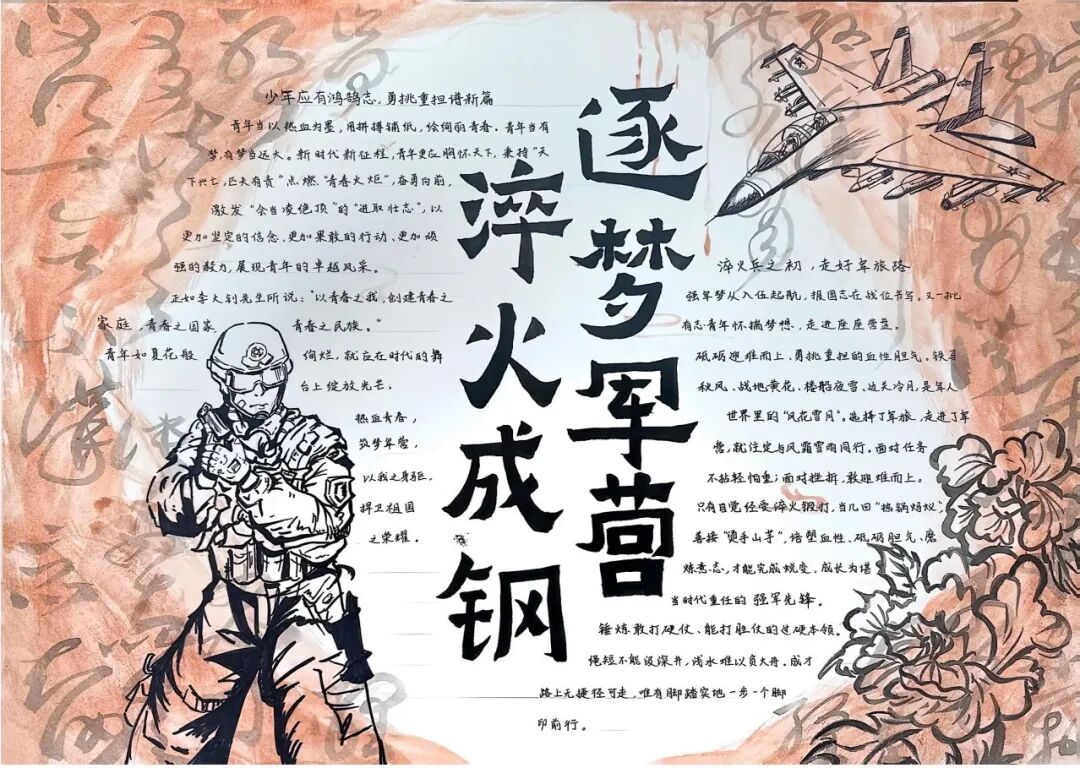 逐梦军营
淬火成钢
少年应有鸿鹄志，勇挑重担谱新篇
青年当以热血为墨，用拼搏铺纸，绘绚丽青春。青年当有
梦，有梦当远大。新时代新征程，青年更应胸怀天下，秉持“天
下兴亡，匹夫有责”点燃“青春火炬”，奋勇向前，
激发“会当凌绝顶”的“进取壮志”，以
更加坚定的信念、更加果敢的行动、更加顽
强的毅力，展现青年的卓越风采。
正如李大钊先生所说：“以青春之我，创建青春之
家庭，青春之国家 青春之民族。”
青年如夏花般 绚烂，就应在时代的舞
台上绽放光芒。
热血青春，
筑梦军营，
以我之身躯，
捍卫祖国
之荣耀。
淬火兵之初，走好军旅路
强军梦从入伍起航，报国志在战位书写。又一批
有志青年怀揣梦想、走进座座营盘。
砥砺迎难而上、勇挑重担的血性胆气。铁马
秋风、战地黄花、楼船夜雪、边关冷月，是军人
世界里的“风花雪月”。选择了军旅，走进了军
营，就注定与风霜雪雨同行。面对任务
不拈轻怕重；面对挫折，敢迎难而上。
只有自觉经受淬火锻打，当几回“热锅蚂蚁”，
善接“烫手山芋”，培塑血性、砥砺胆气、磨
炼意志，才能完成蜕变，成长为堪
当时代重任的强军先锋。
锤炼敢打硬仗、能打胜仗的过硬本领。
绳短不能汲深井，浅水难以负大舟。成才
路上无捷径可走，唯有脚踏实地一步一个脚
印前行。